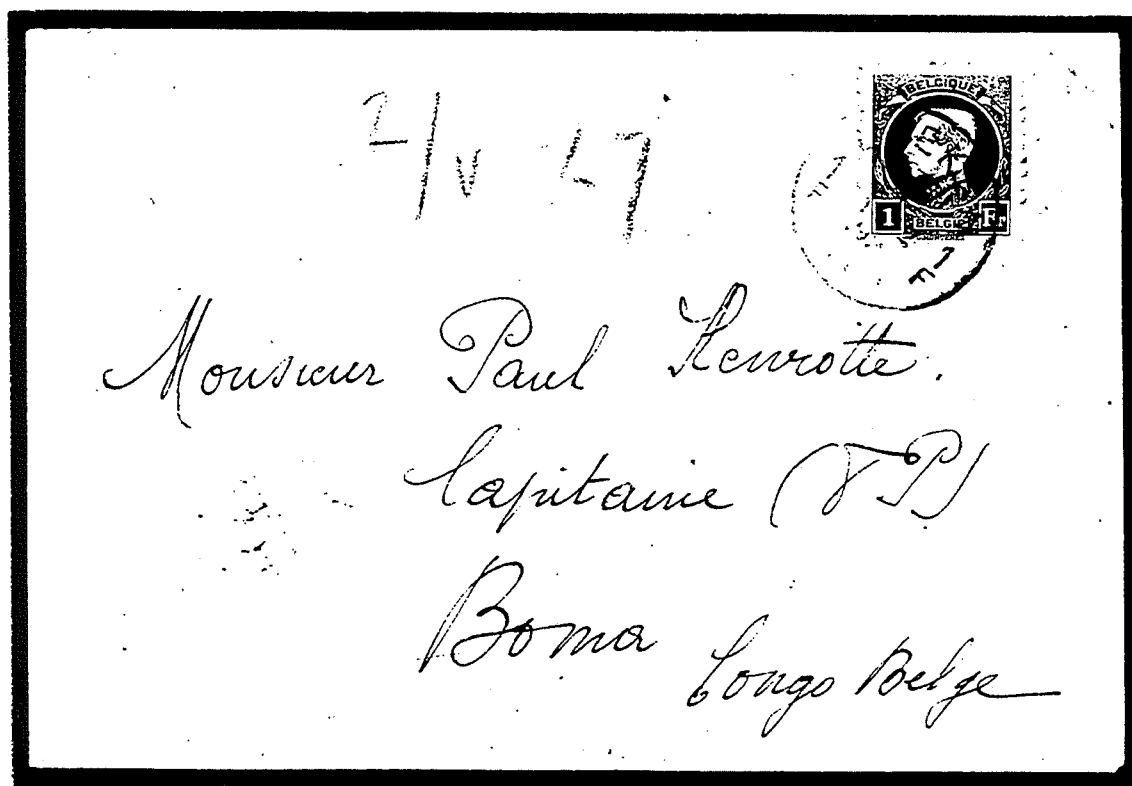 2/V 27
BELGIQUE
1 BELGIË Fr
Monsieur Paul Henrotte.
Capitaine (FP)
Boma
Congo Belge